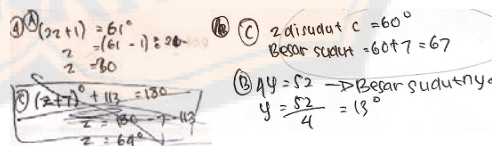 ① Ⓐ (2z+1) = 61°
z = (61 - 1) : 2
z = 30
Ⓒ (z+7)° + 113 = 180
z = 180 - 7 - 113
z = 60°
Ⓒ z disudut C = 60°
Besar sudut = 60+7 = 67
Ⓑ 4y = 52 → Besar sudutnya
y = 52/4 = 13°